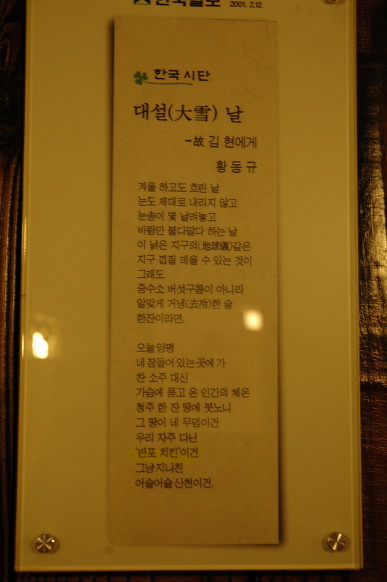 한국일보 2001. 2.12
한국시단
대설(大雪) 날
-故 김 현에게
황 동 규
겨울 하고도 흐린 날
눈도 제대로 내리지 않고
눈송이 몇 날려놓고
바람만 불다말다 하는 날
이 낡은 지구의(地球儀)같은
지구 껍질 데울 수 있는 것이
그래도
중수소 버섯구름이 아니라
알맞게 거냉(去冷)한 술
한잔이라면,
오늘 양평
네 잠들어 있는 곳에 가
찬 소주 대신
가슴에 품고 온 인간의 체온
청주 한 잔 땅에 붓노니
그 땅이 네 무덤이건
우리 자주 다닌
'반포 치킨'이건
그냥 지나친
어슬어슬 산천이건.